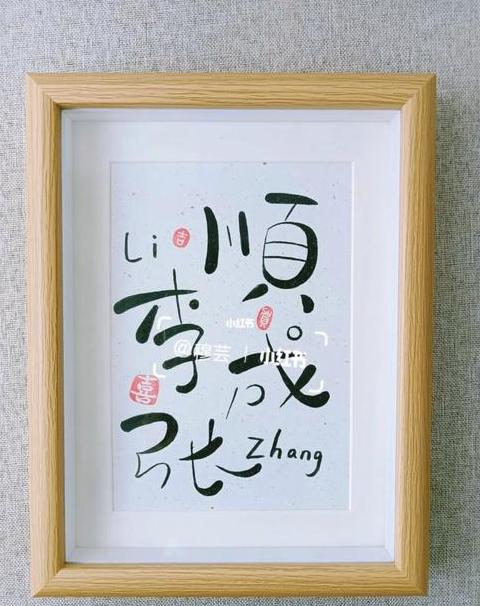 Li
吉
順
李
成
喜
张
Zhang
小红书
@穆芸 | 小红书